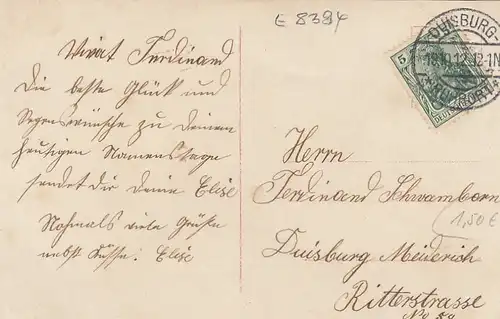 E 8394
Vivat Ferdinand
Die beste Glück und
Segenswünsche zu Deinem
heutigen Namenstage
sendet Dir Deine Elise
Nochmals viele Grüße
nebst Küsse. Elise
DUISBURG-
18.10.12.12-1N
5
Herrn
Ferdinand Schwamborn
1,50 €
Duisburg Meiderich
Ritterstrasse
No 59